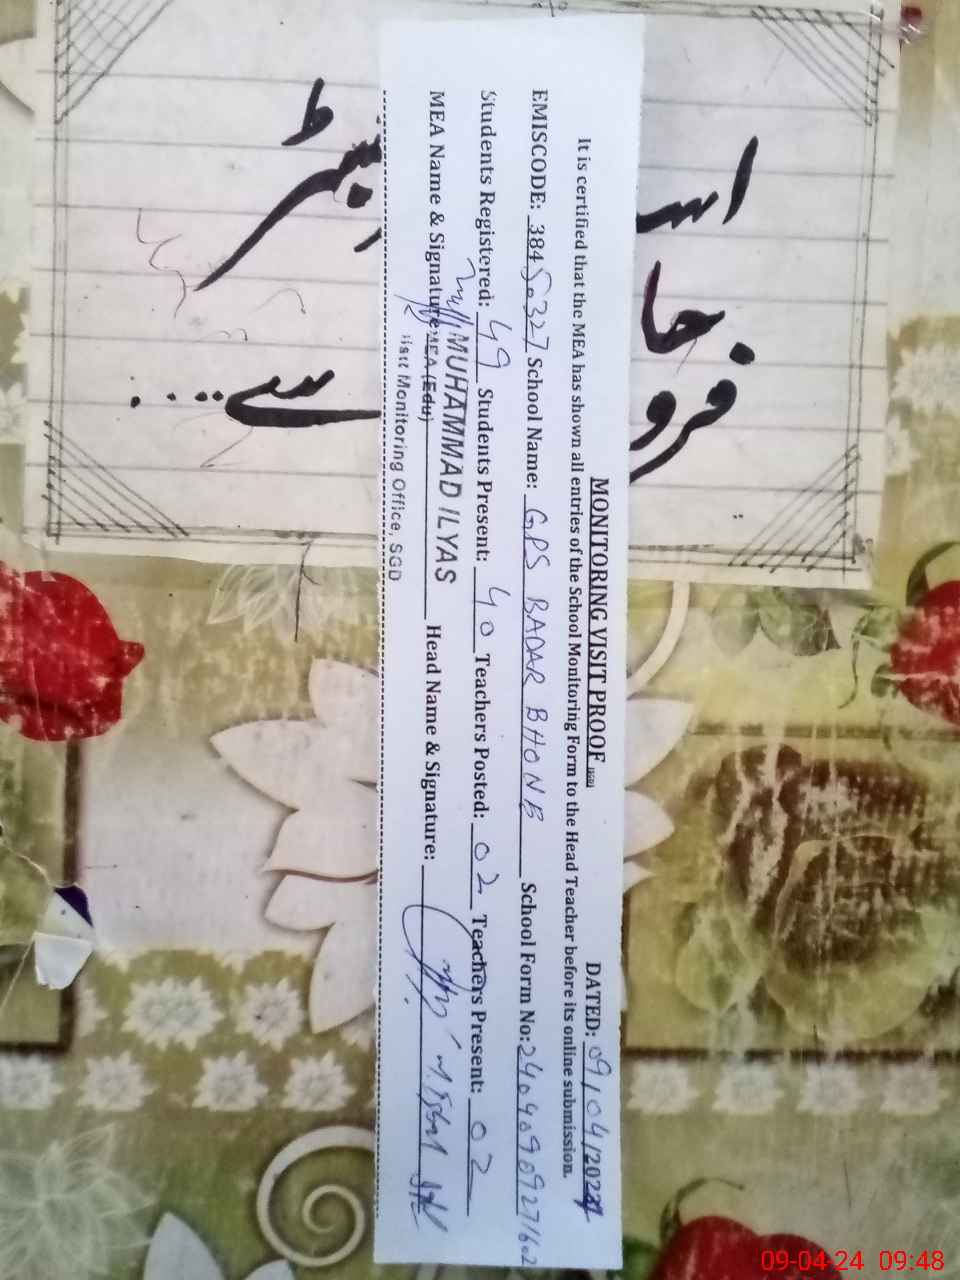 MONITORING VISIT PROOF DATED: 09/04/2024
It is certified that the MEA has shown all entries of the School Monitoring Form to the Head Teacher before its online submission.
EMISCODE: 38450327 School Name: GPS BADAR BHONB School Form No:
Students Registered: 49 Students Present: 40 Teachers Posted: 02 Teachers Present: 02
MUHAMMAD ILYAS
MEA Name & Signature: MEA (Edu) Head Name & Signature:
Distt Monitoring Office, SGD
09-04-24 09:48